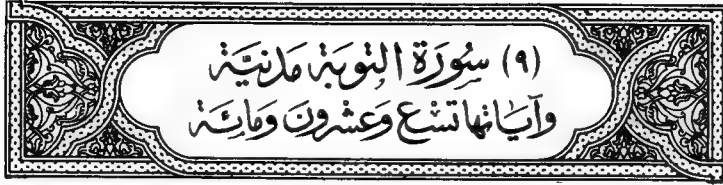 (٩) سُورَة التوبَة مَدَنيَّة
وَآيَاتها تسْع وَعشرُونَ وَمائة